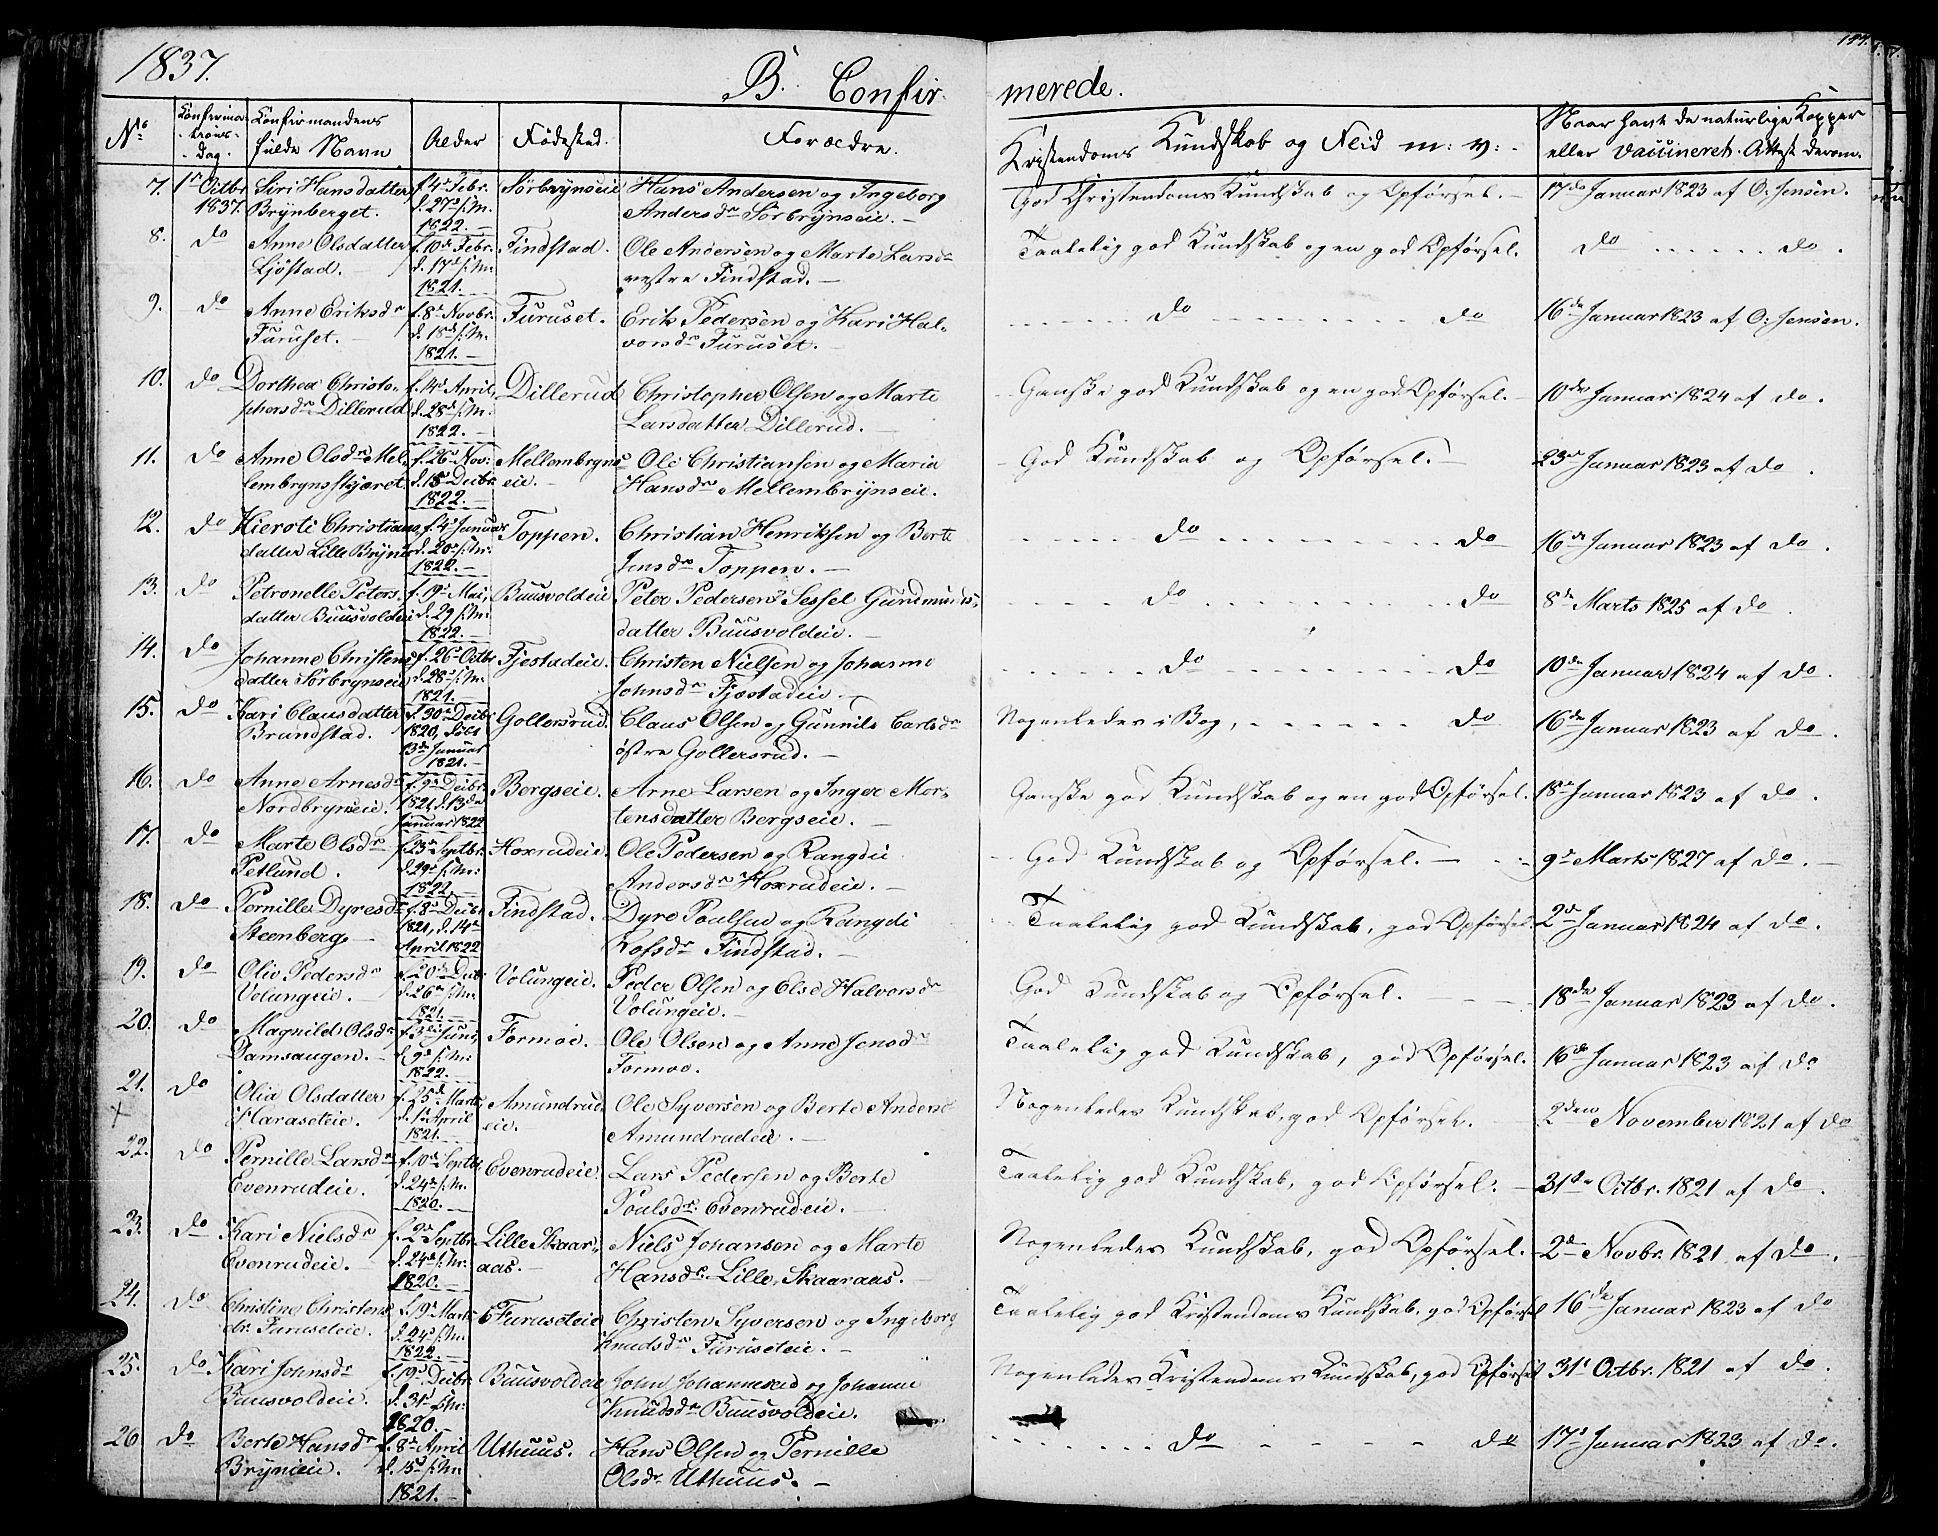 1837.
B. Confirmerede.
147.
No
Confirmations-Dag.
Confirmandens fulde Navn
Alder
Fødested.
Forældre.
Kristendoms Kundskab og Flid m: v:
Naar havt de naturlige Kopper eller Vaccineret. Attest derom.
7. 1ste Octbr 1837. Siri Hansdatter Brynberget. f. 4de Febr. d. 27de s: M. 1822. Sørbrynseie Hans Andersen og Ingeborg Andersdr Sørbrynseie. God Christendoms Kundskab og Opførsel. 17de Januar 1823 af O: Jensen.
8. do Anne Olsdatter Ljøstad. f. 10de Febr. d. 17de s: M. 1821. Findstad. Ole Andersen og Marte Larsdr vestre Findstad. Taalelig god Kundskab og en god Opførsel. do do.
9. do Anne Eriksdr Furuset. f. 8de Novbr. d. 18de s: M. 1821. Furuset. Erik Pedersen og Kari Halvorsdr Furuset. do do 16de Januar 1823 af O: Jensen.
10. do Dorthea Christophersdr Dillerud f. 14de April, d. 28de s: M: 1822. Dillerud Christopher Olsen og Marte Larsdatter Dillerud. Ganske god Kundskab og en god Opførsel. 10de Januar 1824 af do.
11. do Anne Olsdr Mellembrynsskjæret. f. 26de Nov: d. 18de Decbr 1822. Mellembrynseie. Ole Christiansen og Maria Hansdr Mellembrynseie. God Kundskab og Opførsel. 23de Januar 1823 af do.
12. do Kieroti Christiansdatter Lille Bryni f. 4de Januar d. 20de s: M: 1822. Toppen. Christian Henriksen og Berte Jensdr Toppen. do do 16de Januar 1823 af do.
13. do Petronelle Petersdatter Buusvoldeie f. 19de Mai, d. 29 s: M: 1822. Buusvoldeie Peter Pedersen & Sessel Gundmundsdatter Buusvoldeie. do do 8de Marts 1825 af do.
14. do Johanne Christensdatter Sørbrynseie f. 26de Octbr d. 28de s: M: 1821. Fjestadeie. Christen Nielsen og Johanne Johnsdr Fjestadeie. do do 10de Januar 1824 af do.
15. do Kari Clausdatter Brundstad. f. 30te Decbr 1820, døbt 13de Januar 1821. Gollersrud. Claus Olsen og Gunnild Carlsdr østre Gollersrud. Nogenledes i Bog, do 16de Januar 1823 af do.
16. do Anne Arnesdr Nordbryneie. f. 9de Decbr. 1821, d. 13de Januar 1822 Bergseie. Arne Larsen og Inger Mortensdatter Bergseie. Ganske god Kundskab og en god Opførsel. 18de Januar 1823 af do.
17. do Marte Olsdr Petlund. f. 23de Septbr. d. 29de s: M: 1822. Hoxrudeie. Ole Pedersen og Rangdi Andersdr Hoxrudeie. God Kundskab og Opførsel. 9de Marts 1827 af do.
18. do Pernille Dyresdr Steenberg. f. 8de Decbr 1821, d. 14de April 1822 Findstad. Dyre Poulsen og Rangdi Rolfsdr Findstad. Taalelig god Kundskab, god Opførsel. 2de Januar 1824 af do.
19. do Olie Pedersdr Volungeie. f. 20de Decbr d. 26de s: M: 1821. Volungeie. Peder Olsen og Else Halvorsdr Volungeie. God Kundskab og Opførsel. 18de Januar 1823 af do.
20. do Magnild Olsdr Damsaugen. f. 3die Juni, d. 9de s: M: 1822. Formoe. Ole Olsen og Anne Jensdr Formoe. Taalelig god Kundskab, god Opførsel. 16de Januar 1823 af do
21. do Olia Olsdatter Haraseteie. f. 25de Marts, d. 1ste April 1821. Amundrudeie. Ole Syversen og Berte Anders Amundrudeie. Nogenledes Kundskab, god Opførsel. 2den November 1821 af do
22. do Pernille Larsdr Evenrudeie. f. 10de Septbr d. 24de s: M. 1820. Evenrudeie. Lars Pedersen og Berte Poulsdr. Evenrudeie. Taalelig god Kundskab, god Opførsel. 31te Octbr. 1821 af do.
23. do Kari Nielsdr Evenrudeie. f. 2de Septbr. d. 24de s: M. 1820. Lille Skaaraas. Niels Johansen og Marte Hansdr. Lille Skaaraas. Nogenledes Kundskab, god Opførsel. 2de Novbr. 1821 af do.
24. do Christine Christensdr. Furuseteie. f. 19de Marts d. 24de s: M: 1822. Furuseteie Christen Syversen og Ingeborg Knudsdr Furuseteie. Taalelig god Kristendoms Kundskab, god Opførsel 16de Januar 1823 af do
25. do Kari Johnsdr Buusvoldeie. f. 19de Decbr. d. 31te s: M: 1820. Buusvoldeie John Johannesen og Johanne Knudsdr Buusvoldeie. Nogenledes Kristendoms Kundskab, god Opførsel 31te Octbr. 1821 af do.
26 do Berte Hansdr Brynieie. f. 8de April d. 15de s: M: 1821. Uthuus. Hans Olsen og Pernille Olsdr. Uthuus. do do 17de Januar 1823 af do.